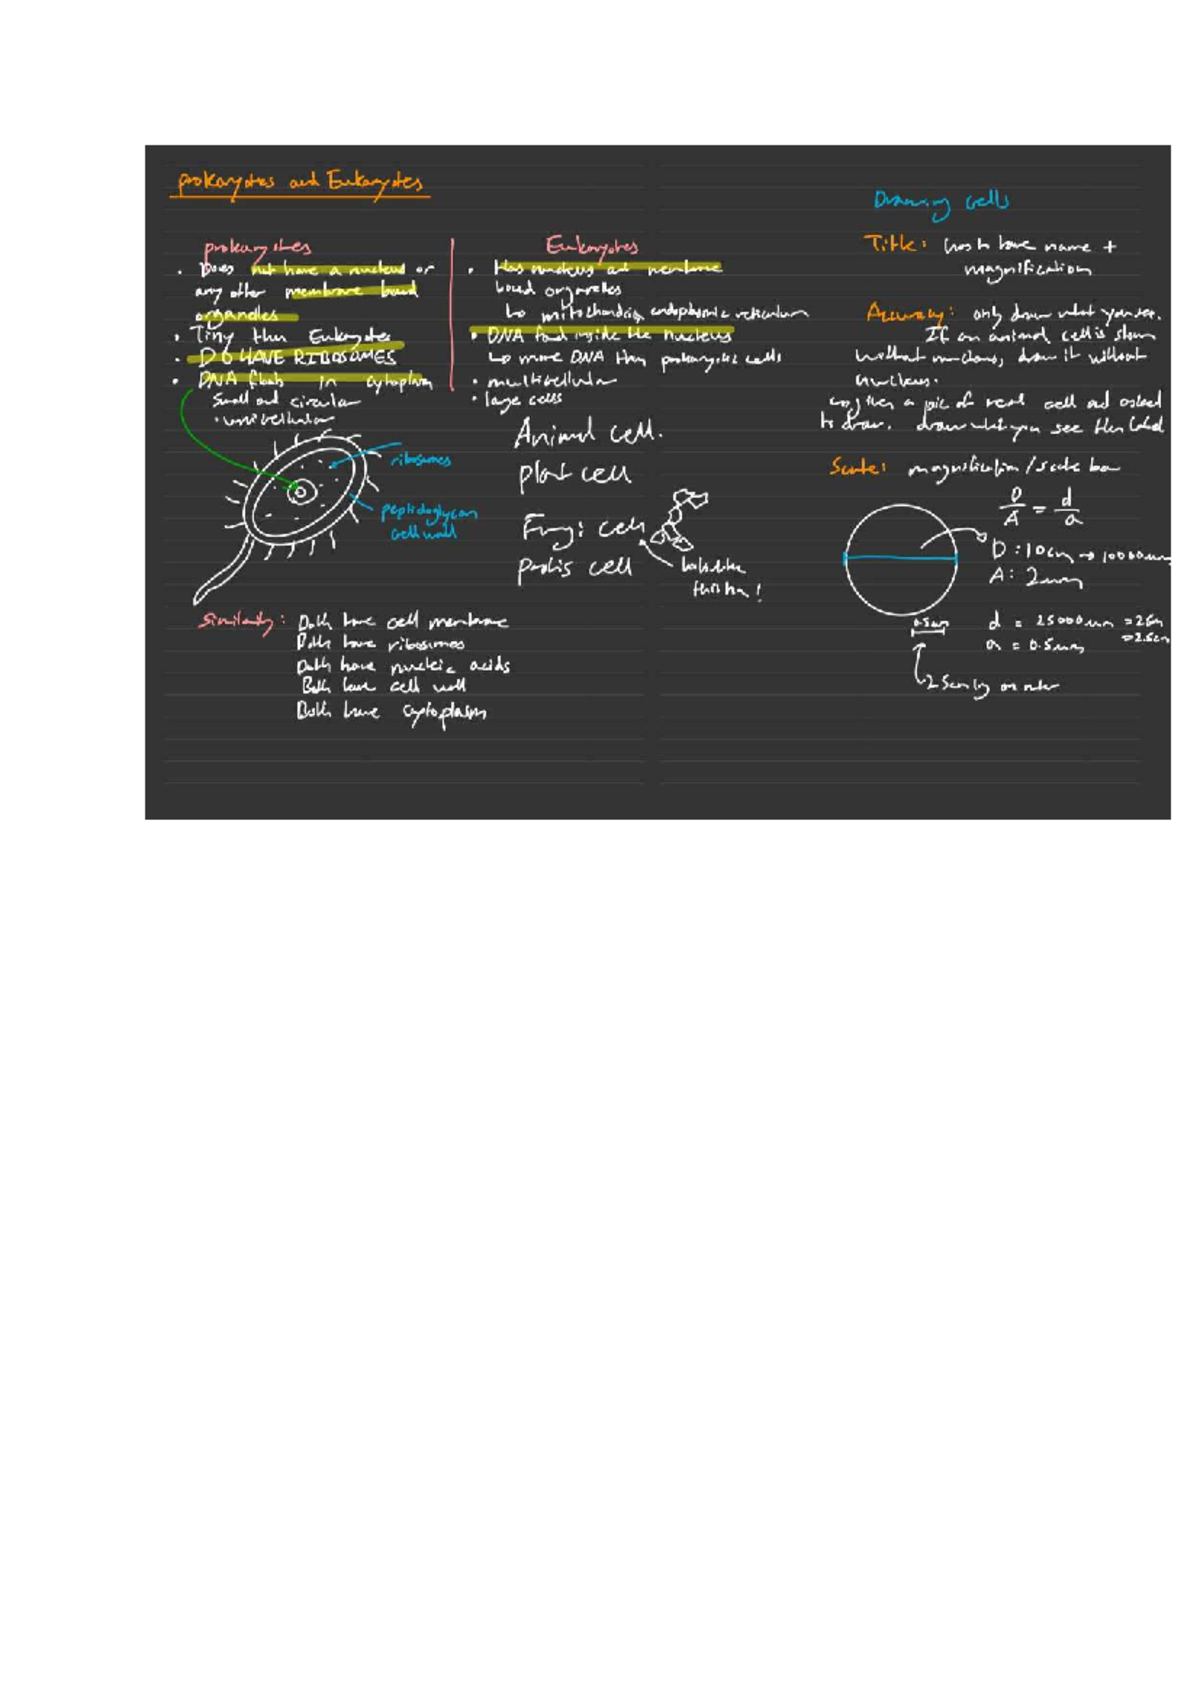 prokaryotes and Eukaryotes
prokaryotes
• Does not have a nucleus or
any other membrane bound
organelles
• Tiny then Eukaryotes
• DO HAVE RIBOSOMES
• DNA floats in cytoplasm
Small and circular
• unicellular
ribosomes
peptidoglycan
cell wall
Similarity: Both have cell membrane
Both have ribosomes
Both have nucleic acids
Both have cell wall
Both have cytoplasm
Eukaryotes
• Has nucleus and membrane
bound organelles
↳ mitochondria, endoplasmic reticulum
• DNA found inside the nucleus
↳ more DNA than prokaryotic cells
• multicellular
• large cells
Animal cell.
plant cell
Fungi cell
protis cell
looks like
this ha!
Drawing cells
Title: has to have name +
magnification
Accuracy: only draw what you see.
If an animal cell is shown
without nucleus, draw it without
nucleus.
a pic of real cell and asked
to draw. draw what you see then label
Scale: magnification / scale bar
D/A = d/a
D: 10cm → 10000um
A: 2um
0.5um
d = 25000um = 2.5cm
= 2.5cm
a = 0.5um
2.5cm by on ruler